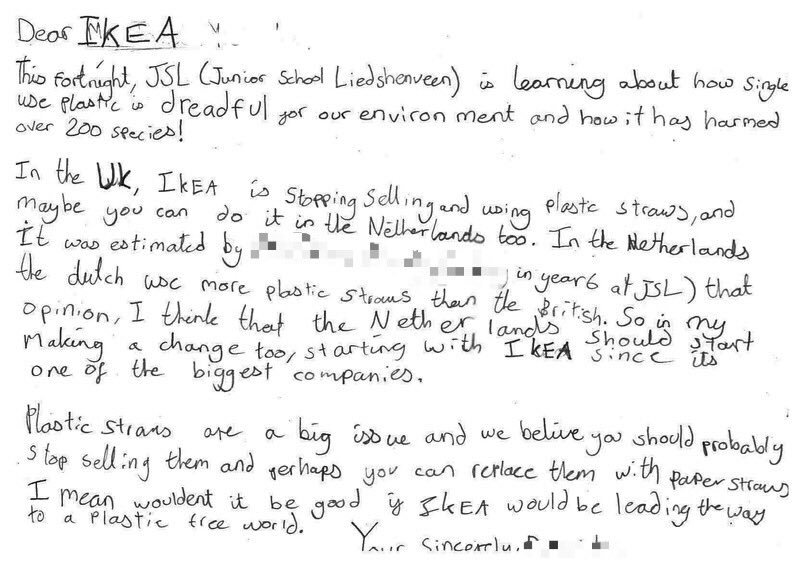 Dear IKEA
This fortnight, JSL (Junior School Liedshenveen) is learning about how single
use plastic is dreadful for our environ ment and how it has harmed
over 200 species!
In the UK, IKEA is stopping selling and using plastic straws, and
maybe you can do it in the Netherlands too. In the Netherlands
it was estimated by
in year 6 at JSL) that
the dutch use more plastic straws than the British. So in my
opinion, I think that the Nether lands should start
making a change too, starting with IKEA since its
one of the biggest companies.
Plastic straws are a big issue and we belive you should probably
stop selling them and perhaps you can replace them with paper straws
I mean wouldent it be good if IKEA would be leading the way
to a plastic free world.
Your sincerely,